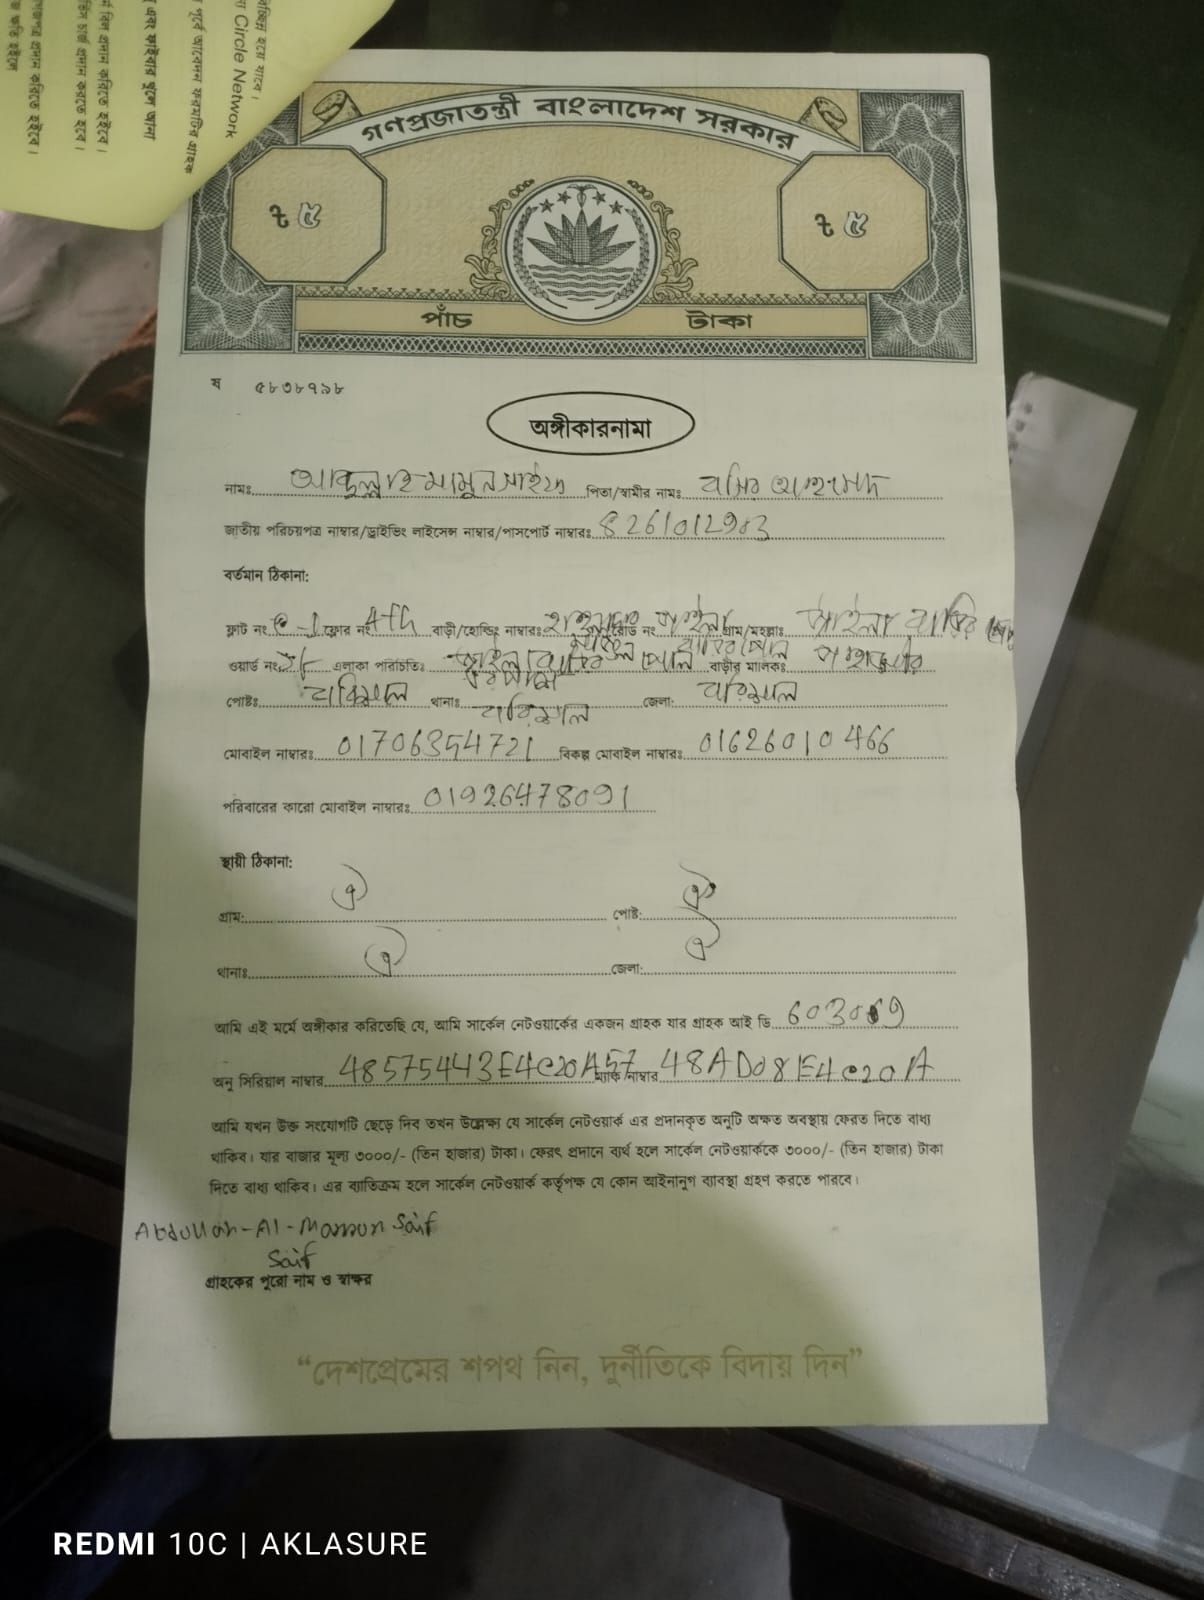 বিচ্ছিন্ন হয়ে যাবে।
Circle Network
পূর্বে আবেদন ফরমটির গ্রাহক
এবং ফাইবার খুলে আনা
বিল প্রদান করিতে হইবে।
চার্জ প্রদান করতে হবে।
প্রদান করিতে হইবে।
ক্ষতি হইলে
গণপ্রজাতন্ত্রী বাংলাদেশ সরকার
৳ ৫ ৳ ৫
পাঁচ টাকা
ষ ৫৮৩৮৭৯৮
অঙ্গীকারনামা
নামঃ আব্দুল্লাহ মামুন সাইফ পিতা/স্বামীর নামঃ বসির আহমেদ
জাতীয় পরিচয়পত্র নাম্বার/ড্রাইভিং লাইসেন্স নাম্বার/পাসপোর্ট নাম্বারঃ 8261012983
বর্তমান ঠিকানা:
ফ্লাট নং ফ্লোর নং 4th বাড়ী/হোল্ডিং নাম্বারঃ রোড নং গ্রাম/মহল্লাঃ
ওয়ার্ড নং এলাকা পরিচিতিঃ পোল বাড়ীর মালিকঃ
পোষ্টঃ বরিশাল থানাঃ বরিশাল জেলা: বরিশাল
মোবাইল নাম্বারঃ 01706354721 বিকল্প মোবাইল নাম্বারঃ 01626010466
পরিবারের কারো মোবাইল নাম্বারঃ 01926478091
স্থায়ী ঠিকানা:
গ্রাম: ঐ পোষ্ট: ঐ
থানাঃ ঐ জেলা: ঐ
আমি এই মর্মে অঙ্গীকার করিতেছি যে, আমি সার্কেল নেটওয়ার্কের একজন গ্রাহক যার গ্রাহক আই ডি
অনু সিরিয়াল নাম্বার 48575443E4C20A57 ম্যাক নাম্বার 48AD081E4C20A
আমি যখন উক্ত সংযোগটি ছেড়ে দিব তখন উল্লেক্ষ্য যে সার্কেল নেটওয়ার্ক এর প্রদানকৃত অনুটি অক্ষত অবস্থায় ফেরত দিতে বাধ্য
থাকিব। যার বাজার মূল্য ৩০০০/- (তিন হাজার) টাকা। ফেরৎ প্রদানে ব্যর্থ হলে সার্কেল নেটওয়ার্ককে ৩০০০/- (তিন হাজার) টাকা
দিতে বাধ্য থাকিব। এর ব্যাতিক্রম হলে সার্কেল নেটওয়ার্ক কর্তৃপক্ষ যে কোন আইনানুগ ব্যাবস্থা গ্রহণ করতে পারবে।
Abdullah-Al-Mamun Saif
Saif
গ্রাহকের পুরো নাম ও স্বাক্ষর
“দেশপ্রেমের শপথ নিন, দুর্নীতিকে বিদায় দিন”
REDMI 10C | AKLASURE